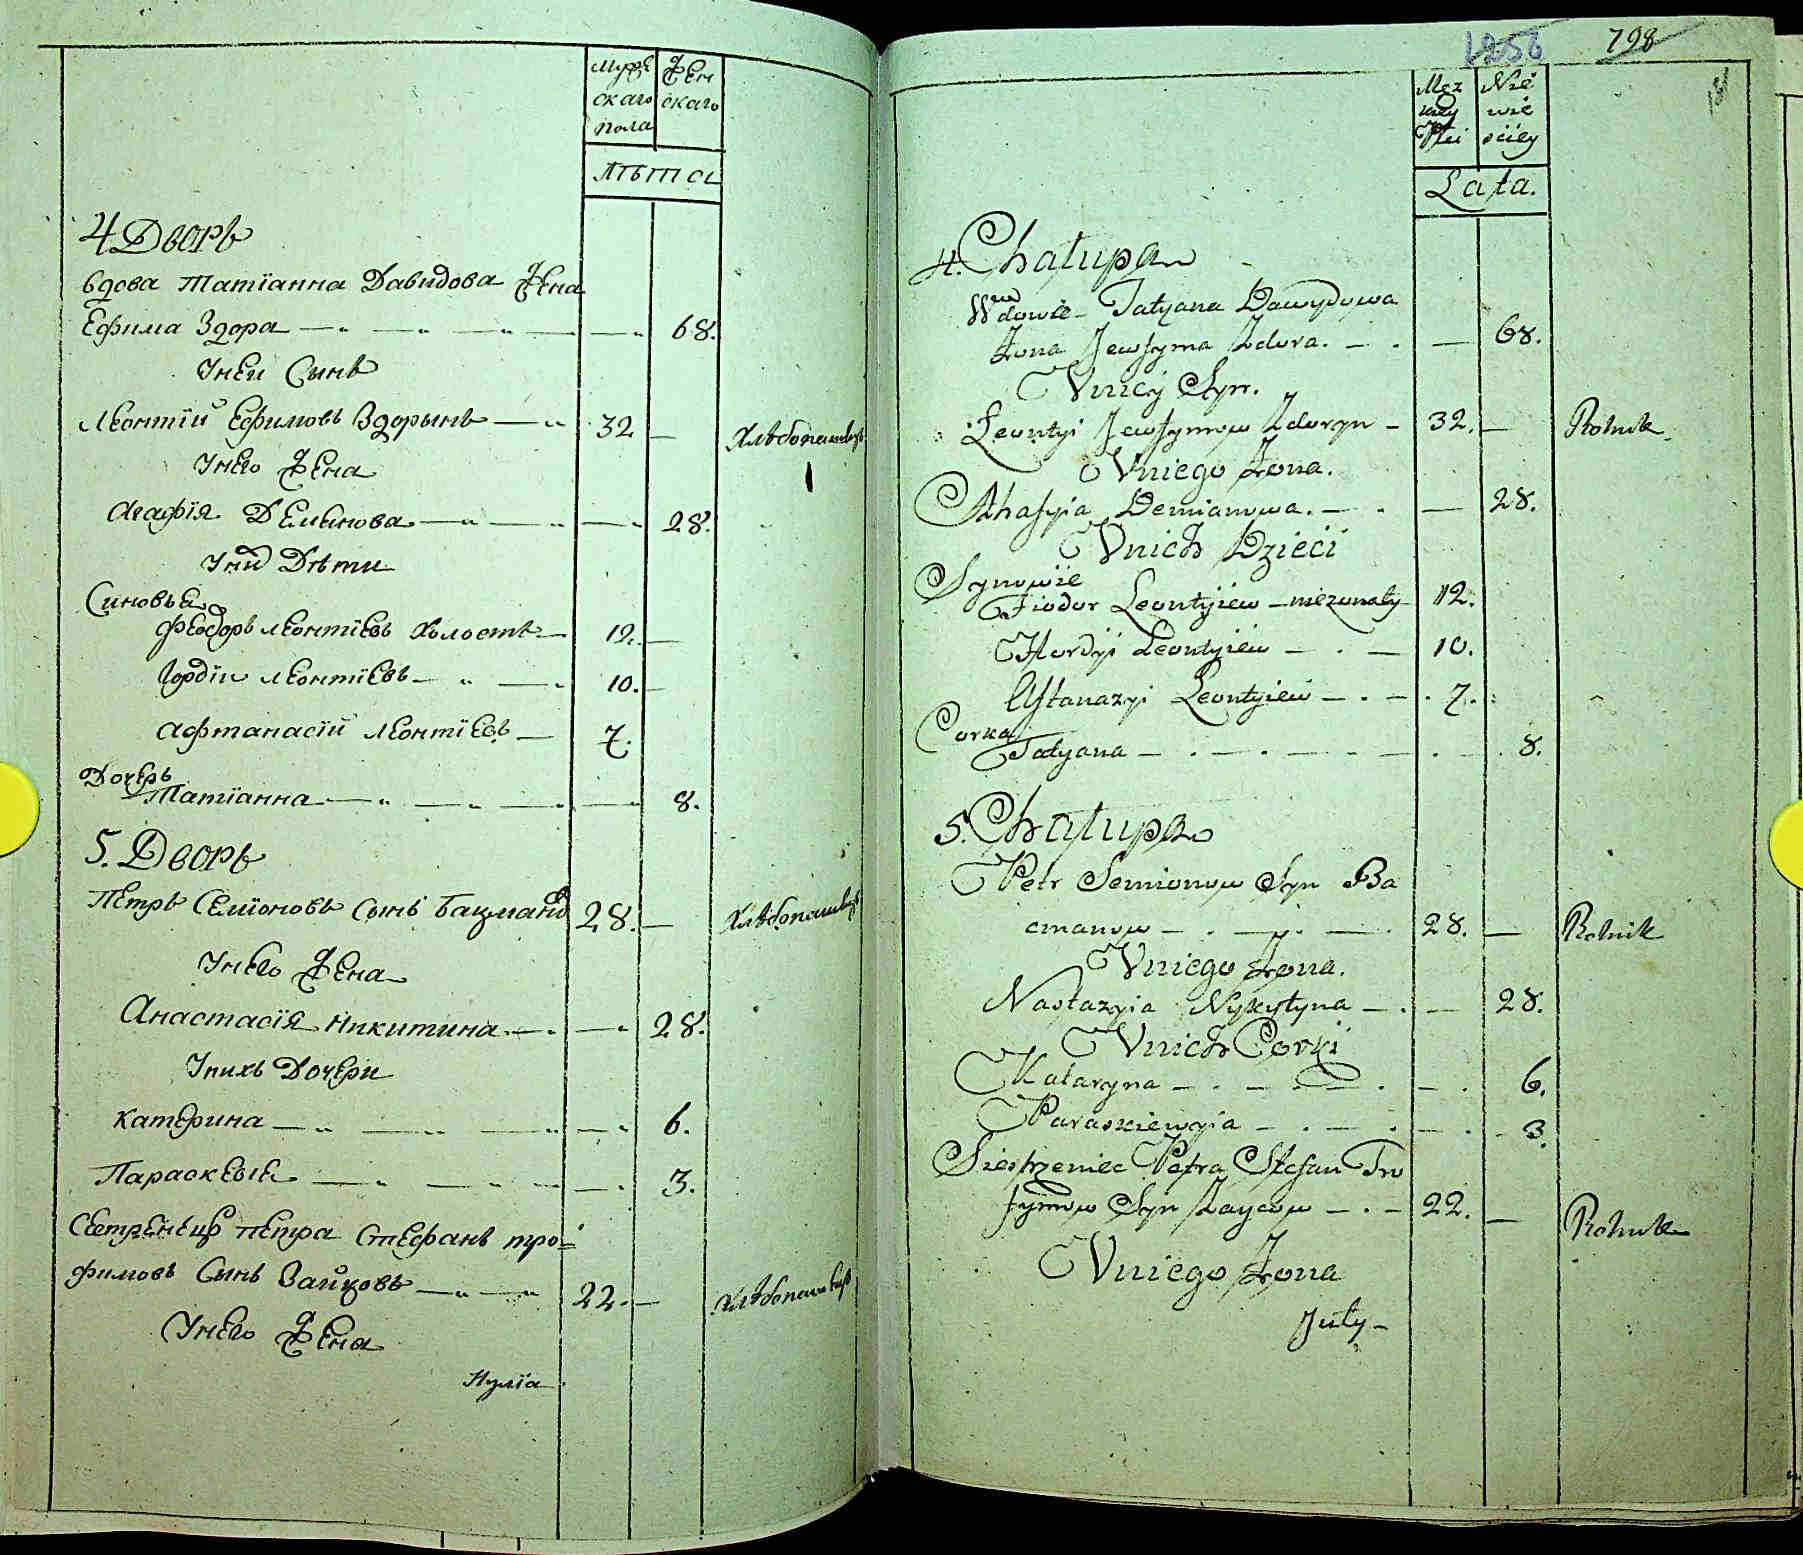 Муже Жен
скаго скаго
пола
Лѣта
4 Дворъ
вдова Татіанна Давидова Жена
Ефима Здора 68.
Унеи Сынъ
Леонтій Ефимовъ Здорынъ 32 Хлѣбопашецъ
Унего Жена
Агафія Демянова 28.
Уних Дѣти
Синовья
Феодоръ Леонтіевъ Холостъ 12.
Гордіи Леонтіевъ 10.
Афтанасій Леонтіевъ 7.
Дочерь
Татіанна 8.
5. Дворъ
Петръ Семіоновъ Сынъ Бацманов 28. Хлѣбопашецъ
Унего Жена
Анастасія Никитина 28.
Унихъ Дочери
Катерина 6.
Параскевія 3.
Сестренецъ Петра Стефанъ Тро=
фимовъ Сынъ Зайцовъ 22. Хлѣбопашецъ
Унего Жена
Іулiа
1256 798
Męz Nie
kiey wie
Płci sciey
Lata.
4. Chałupa
Wdowie Tatyana Dawydowa
Zona Jewfyma Zdora. 68.
Uniey Syn.
Leontyi Jewfymow Zdoryn 32. Rolnik
Uniego Zona.
Ahafyia Demianowa. 28.
Unich Dzieci
Synowie
Fiodor Leontyiew niezonaty 12.
Hordyi Leontyiew 10.
Aftanazyi Leontyiew 7.
Corka
Tatyana 8.
5. Chałupa
Petr Semionow Syn Ba
cmanow 28. Rolnik
Uniego Zona.
Nastazyia Nykytyna 28.
Unich Corki
Kataryna 6.
Paraskiewyia 3.
Siestrzeniec Petra Stefan Tro
fymow Syn Zaycow 22. Rolnik
Uniego Zona
Juły